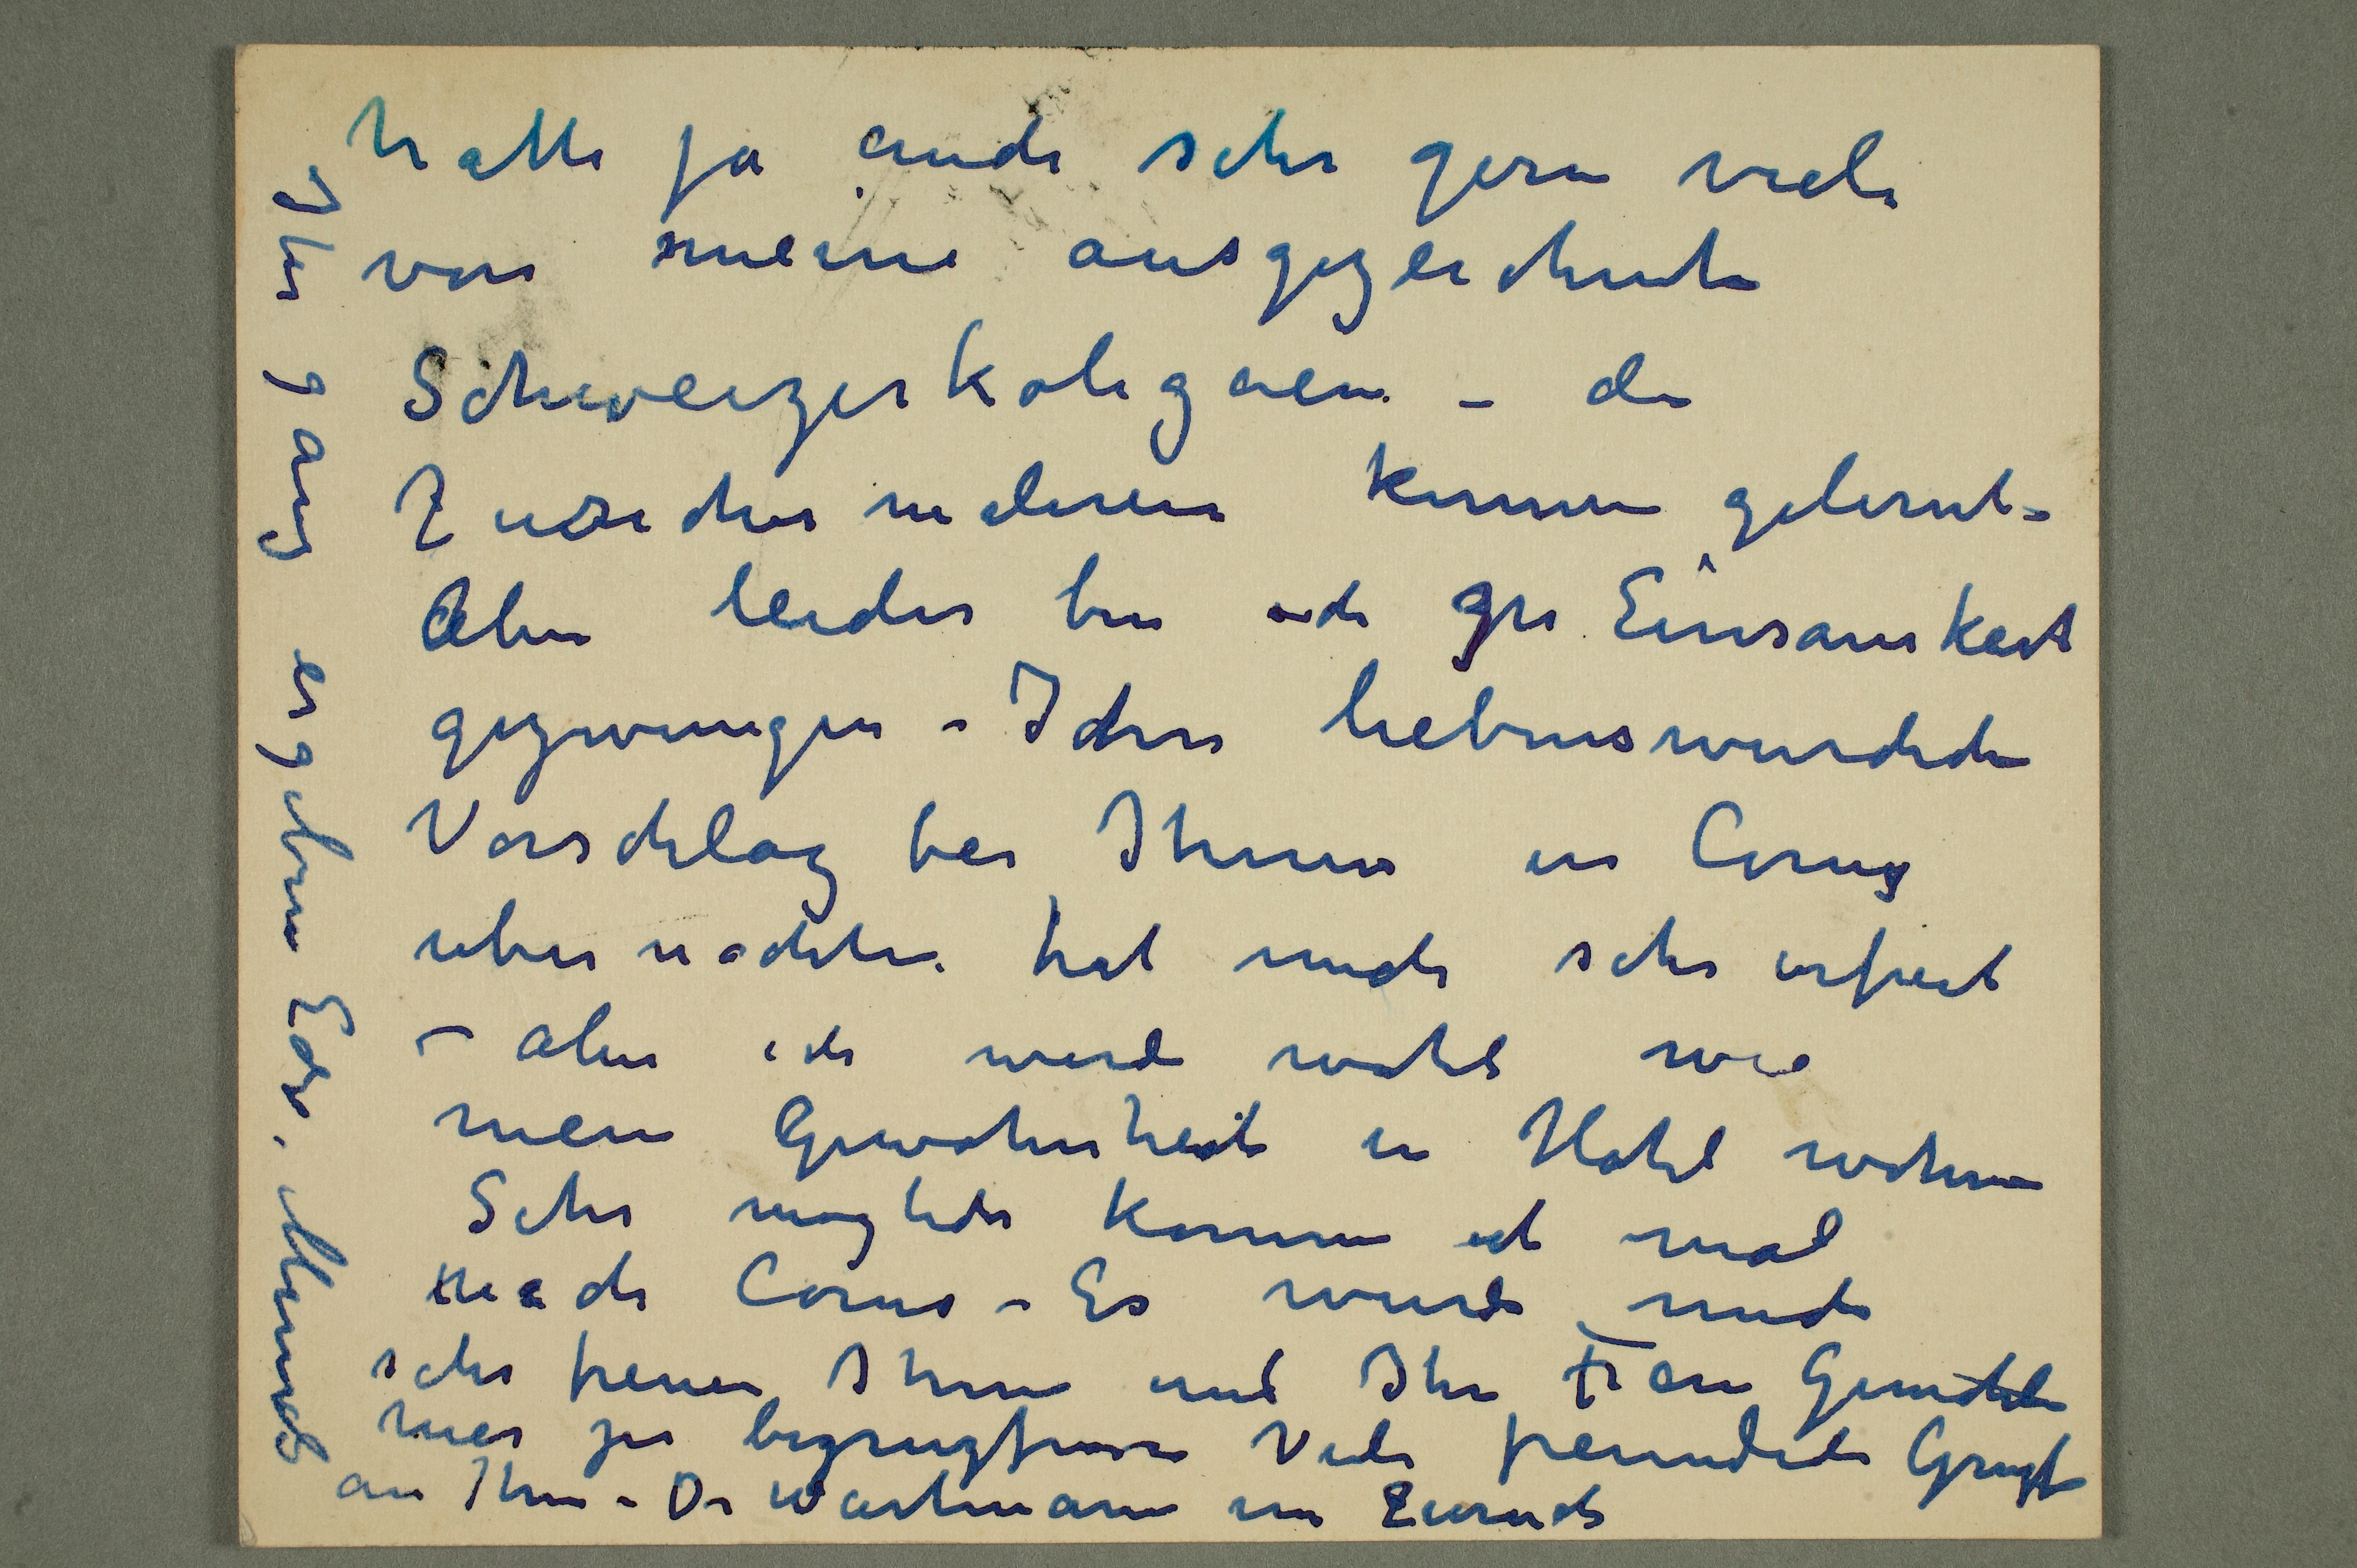 hatte ja auch sehr gern viele
von meine ausgezeichnete
Schweizerkolegaen – die
Züricher maleren kennen gelernt –
Aber leider bin ich zu Einsamkeit
gezwungen – Ihren liebenswurdichen
Vorschlag bei Ihnen in Cornus
übernachten hat mich sehr erfreut
– aber ich werde wohl wie
mein Gewohnheit in Hotel wohnen
Sehr moglich komme ich mal
nach Cornus – Es wurde mich
sehr freuen Ihnen und Ihre Frau Gemahlin
hier zu begrüssen Viele freundliche Grüsse
an Ihnen – Dr Wartmann in Zürich
Ihr ganz ergebene Edv. Munch